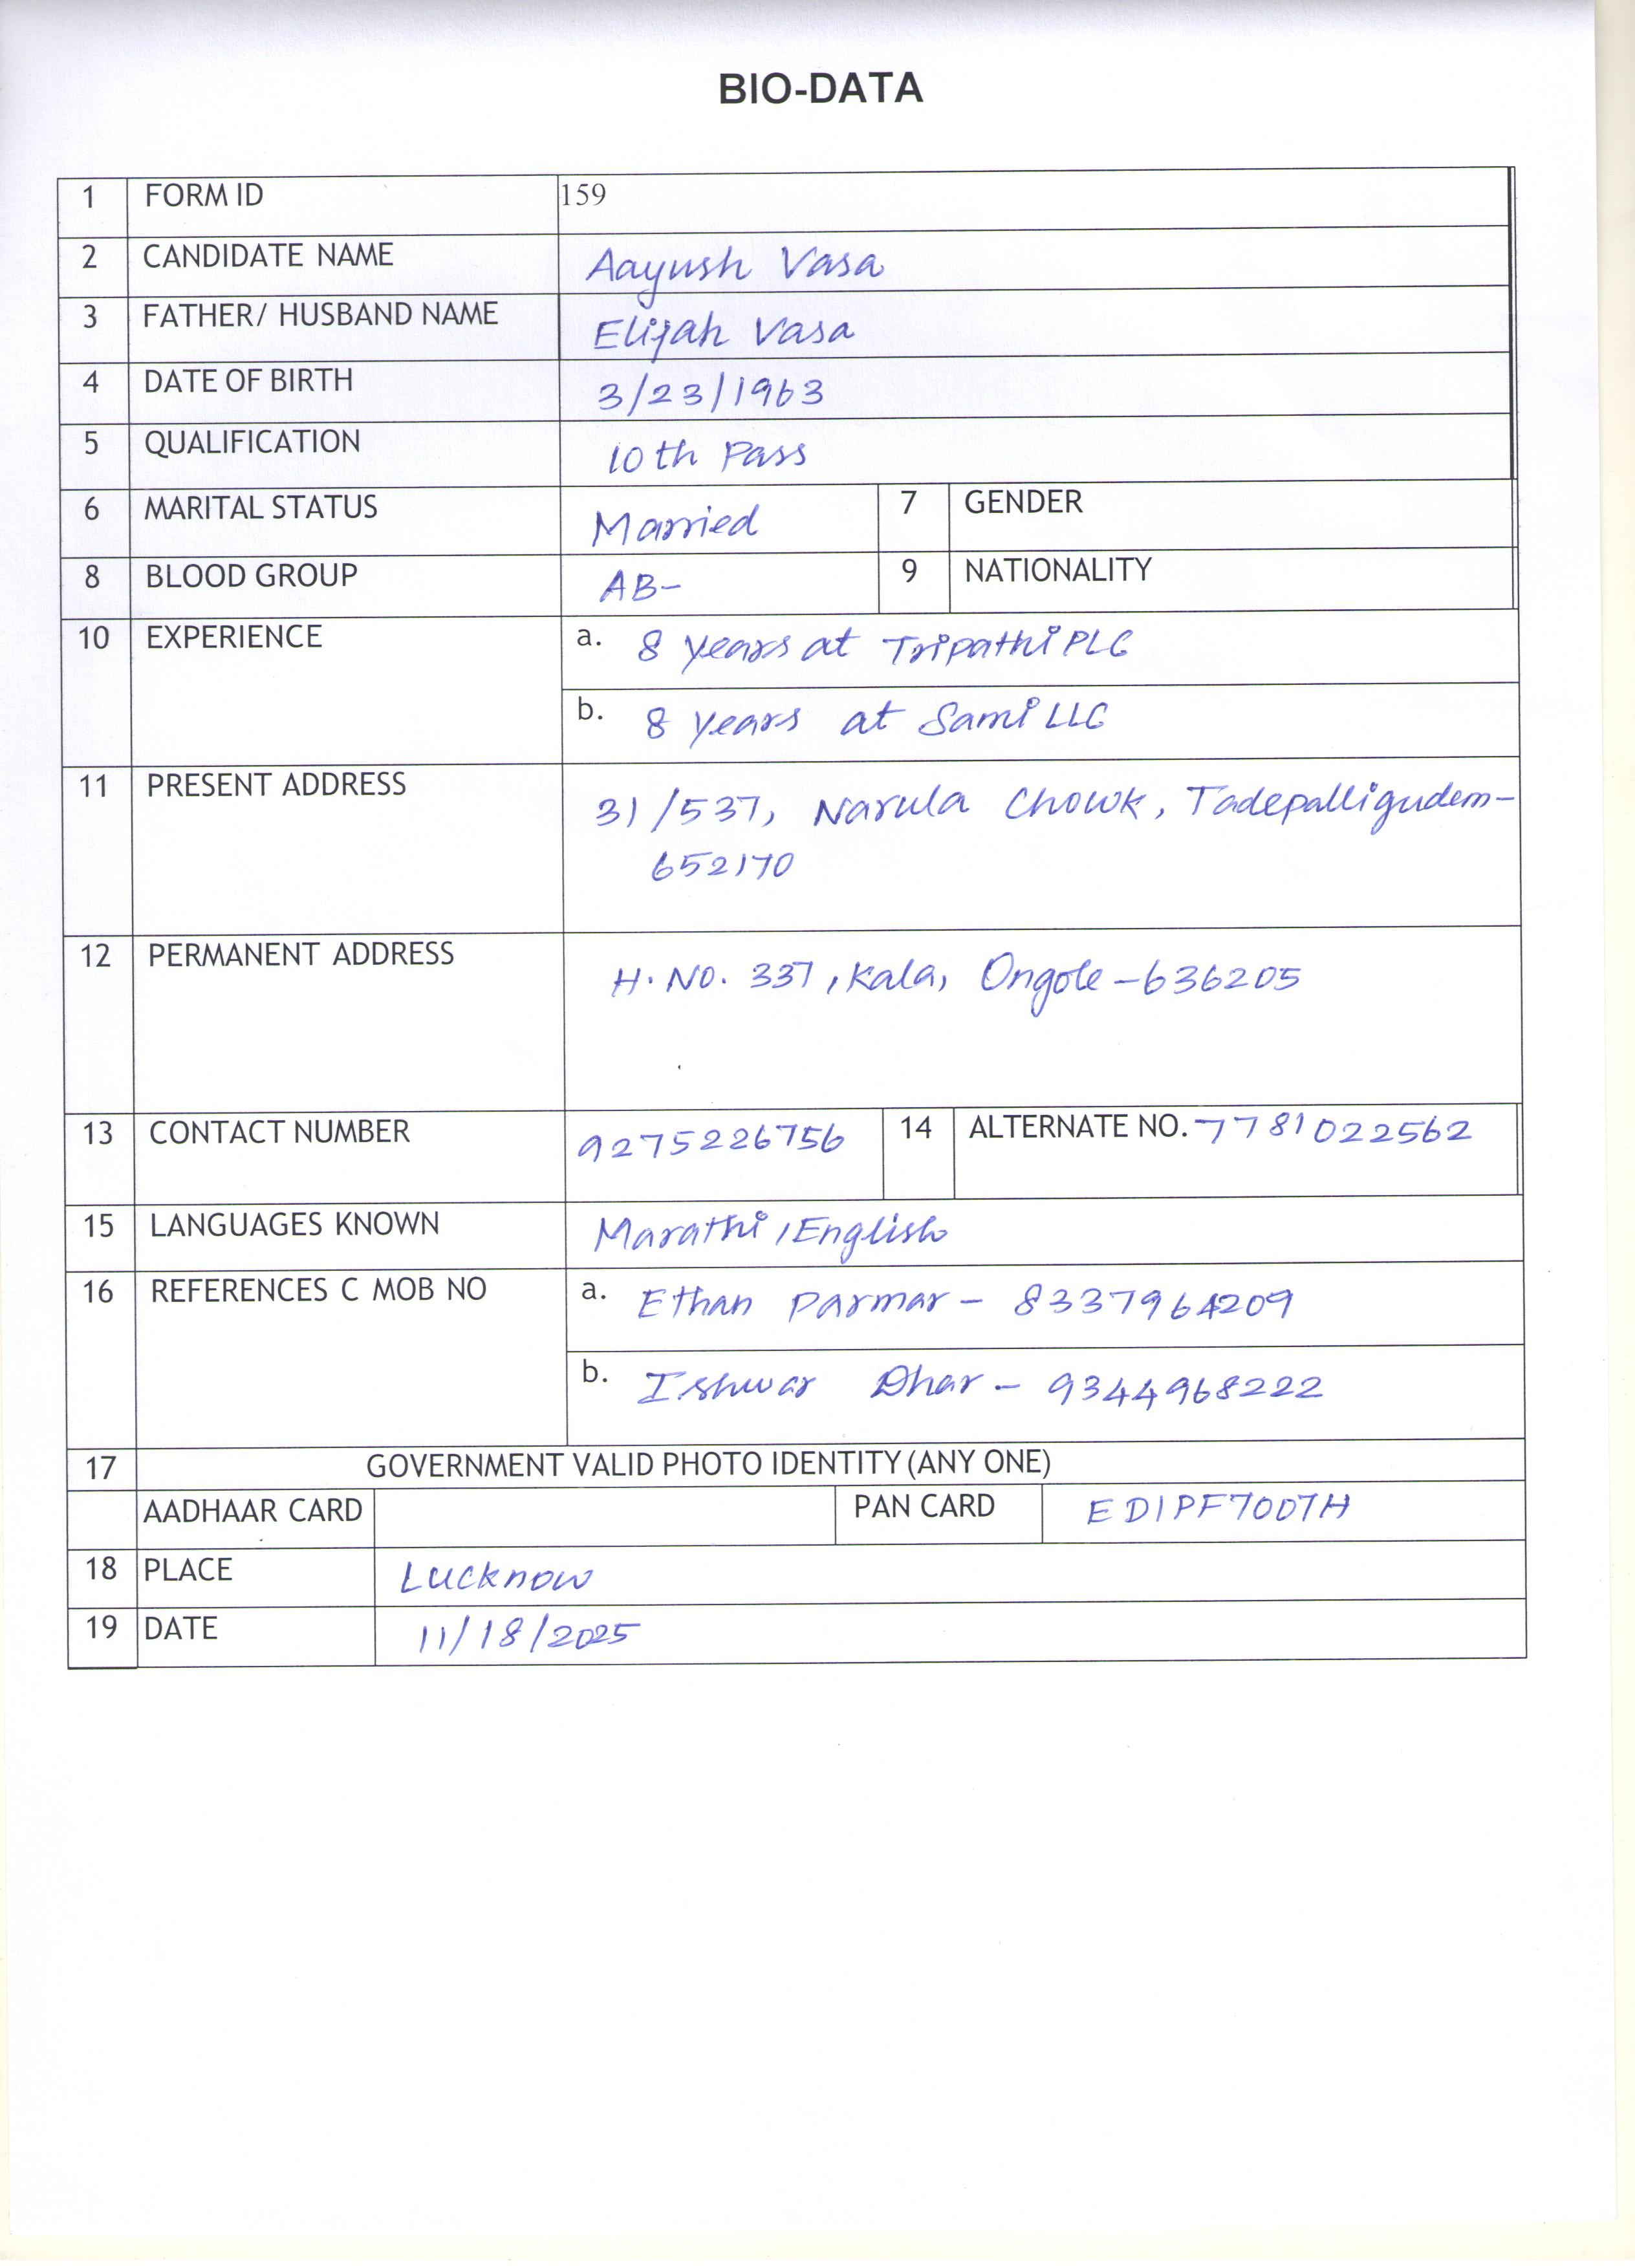 BIO-DATA
1 FORM ID 159
2 CANDIDATE NAME Aayush Vasa
3 FATHER/ HUSBAND NAME Elijah Vasa
4 DATE OF BIRTH 3/23/1963
5 QUALIFICATION 10th Pass
6 MARITAL STATUS Married 7 GENDER
8 BLOOD GROUP AB- 9 NATIONALITY
10 EXPERIENCE a. 8 years at Tripathi PLC
b. 8 years at Sami LLC
11 PRESENT ADDRESS 31/537, Narula Chowk, Tadepalligudem-
652170
12 PERMANENT ADDRESS H. NO. 337, Kala, Ongole-636205
13 CONTACT NUMBER 9275226756 14 ALTERNATE NO. 7781022562
15 LANGUAGES KNOWN Marathi, English
16 REFERENCES C MOB NO a. Ethan Parmar - 8337964209
b. Ishwar Dhar - 9344968222
17 GOVERNMENT VALID PHOTO IDENTITY (ANY ONE)
AADHAAR CARD PAN CARD EDIPF7007H
18 PLACE Lucknow
19 DATE 11/18/2025